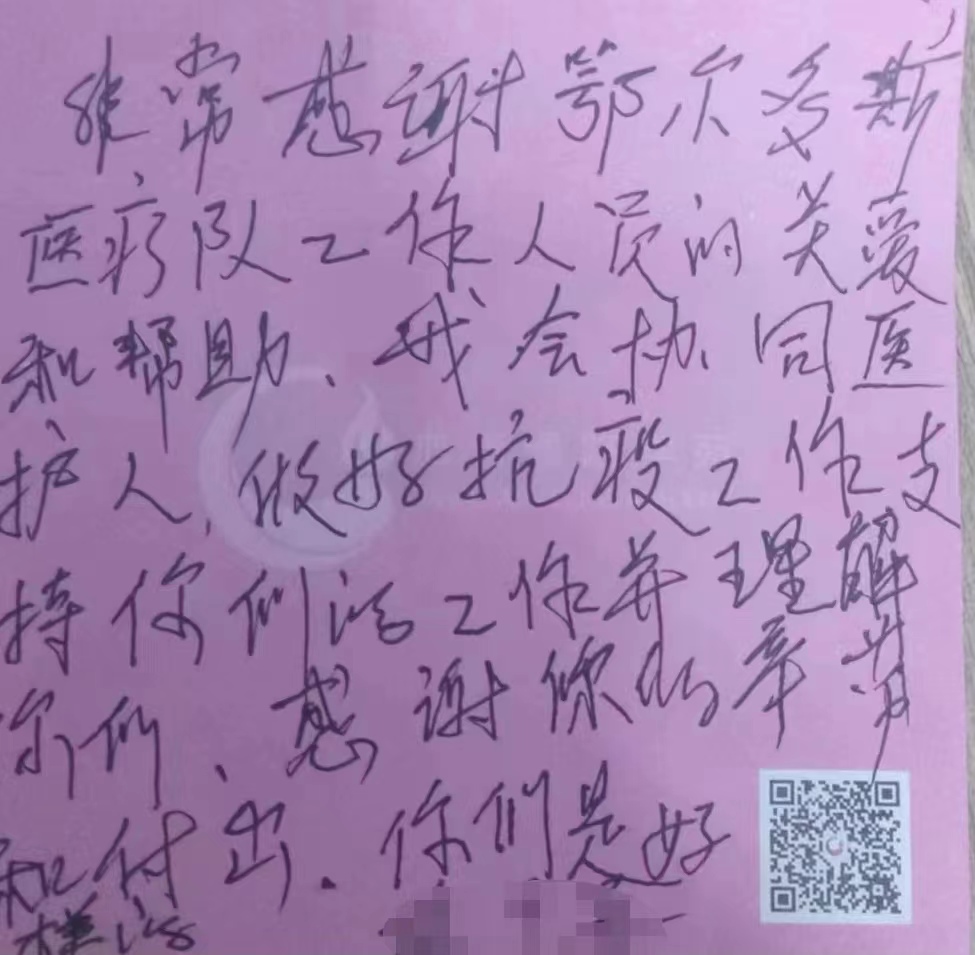 非常感谢鄂尔多斯
医疗队工作人员的关爱
和帮助、我会协同医
护人,做好抗疫工作支
持你们的工作并理解
你们、感谢你们辛劳
和付出.你们是好
样的